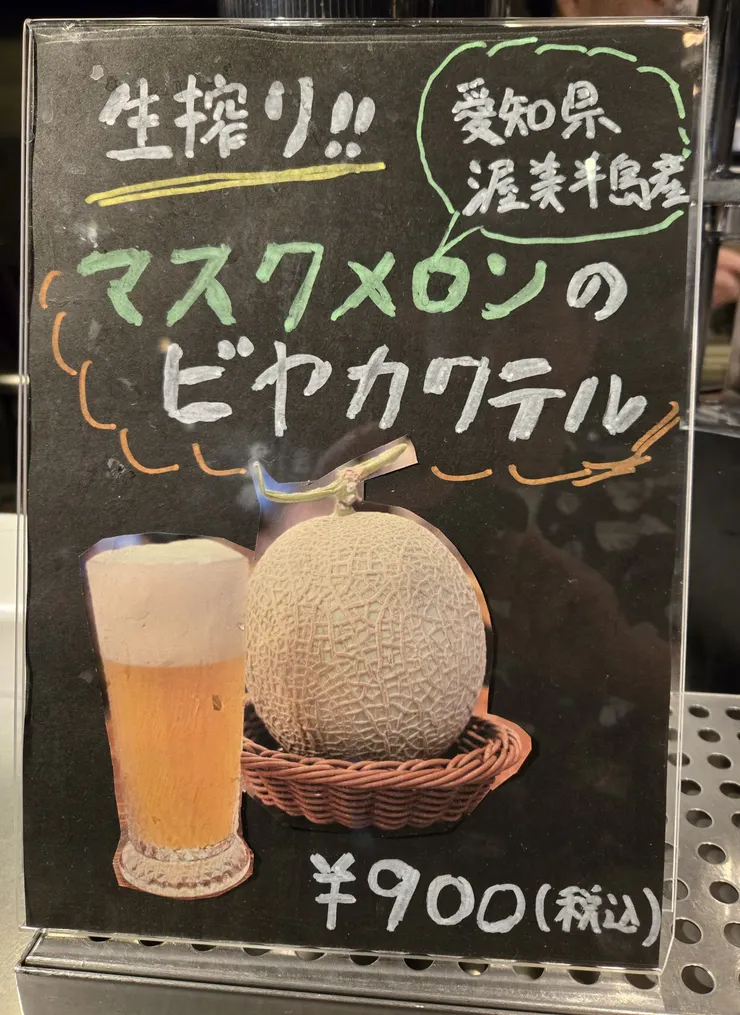 生搾り!!
愛知県
渥美半島産
マスクメロンの
ビヤカクテル
¥900(税込)